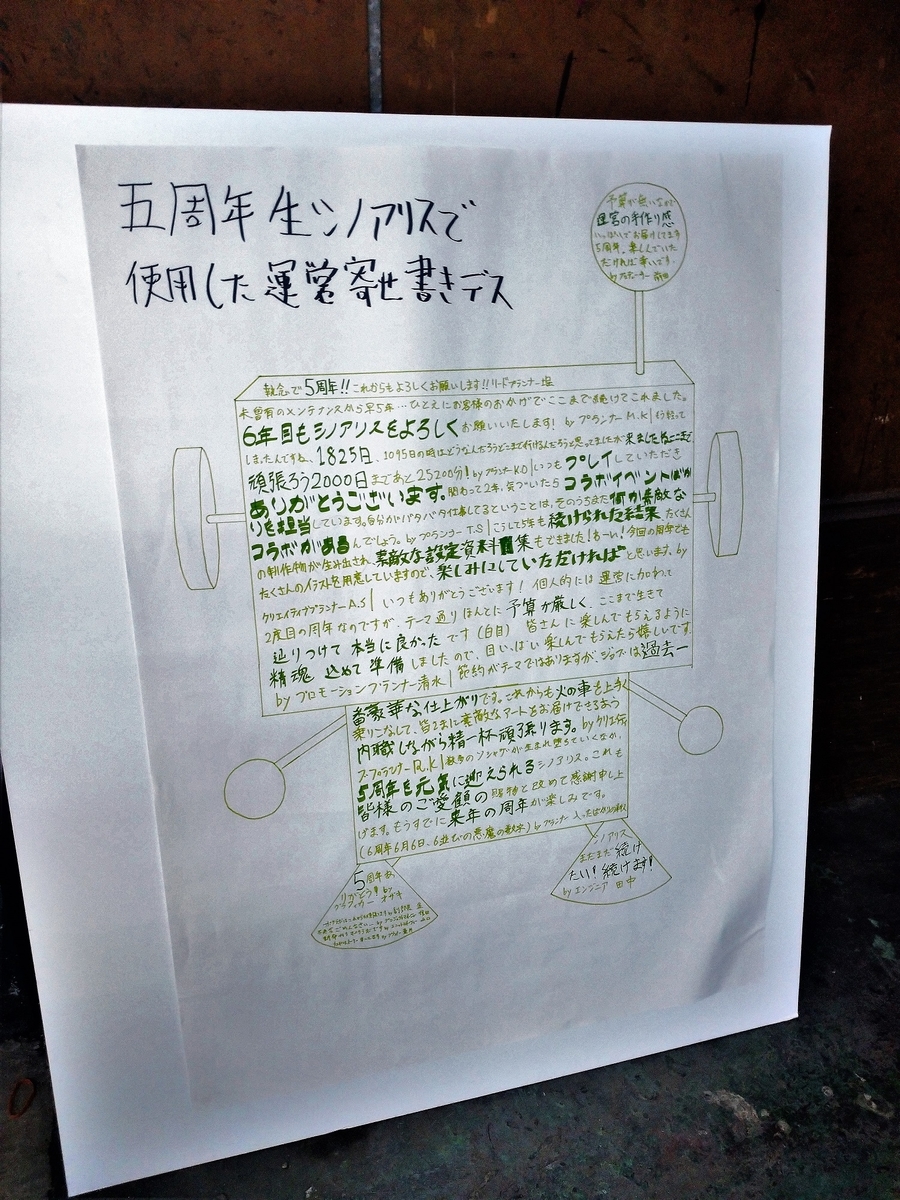 五周年生シノアリスで
使用した運営寄せ書きデス
予算が無いなりで
運営の手作り感
いっぱいでお届けしてます
5周年、楽しんでいた
だければ幸いです。
執念で5周年!!これからもよろしくお願いします!!リードプランナー塩
未曾有のメンテナンスから早5年…ひとえにお客様のおかげでここまで続けてこれました。
6年目もシノアリスをよろしくお願いいたします! by プランナー M.K|行くって
しましたんですね、1825日、1095日の時はどうなんだろうどこまで行けるんだろうと思ってましたが来ましたねここまで
頑張ろう2000日まであと252000分! by プランナー KO|いつもプレイしていただき
ありがとうございます。関わって2年、気づいたらコラボイベントばか
りを担当しています。自分がバタバタ仕事してるということは、そのうちまた何か素敵な
コラボがあるんでしょう。by プランナー T.S|こうして5年も続けられた結果、たくさん
の制作物が生み出され、素敵な設定資料集もできました!わーい!今回の周年でも
たくさんのイラストを用意していますので、楽しみにしていただければと思います。by
クリエイティブプランナー A.S|いつもありがとうございます! 個人的には運営に加わって
2度目の周年なのですが、テーマ通りほんとに予算が厳しく、ここまで生きて
辿りつけて本当に良かったです(白目) 皆さんに楽しんでもらえるように
精魂込めて準備しましたので、目いっぱい楽しんでもらえたら嬉しいです。
by プロモーションプランナー清水|節約がテーマではありますが、ジョブは過去一
番豪華な仕上がりです。これからも火の車を上手く
乗りこなして、皆さまに素敵なアートをお届けできるよう
内職しながら精一杯頑張ります。by クリエイテ
ィブプランナー R.K|数多のソシャゲが生まれ堕ちていくなか、
5周年も元気に迎えられるシノアリス。これも
皆様のご愛顧の賜物と改めて感謝申し上
げます。もうすでに来年の周年が楽しみです。
(6周年6月6日、6並びの悪魔の数字) by プランナー 入ったばかりの新人
5周年あ
りがとう! by
グラフィッカー オザキ
シノアリス
まだまだ続け
たい! 続けます!
by エンジニア 田中